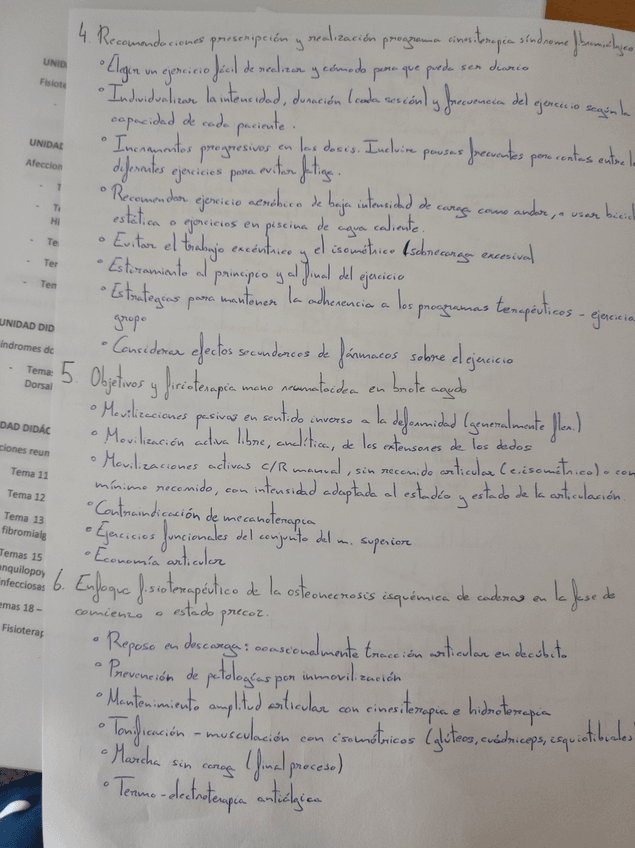 4. Recomendaciones prescripción y realización programa cinesiterapia síndrome fibromiálgico
• Elegir un ejercicio fácil de realizar y cómodo para que pueda ser diario
• Individualizar la intensidad, duración (cada sesión) y frecuencia del ejercicio según la
capacidad de cada paciente.
• Incrementos progresivos en las dosis. Incluir pausas frecuentes pero cortas entre l
diferentes ejercicios para evitar fatiga.
• Recomendar ejercicio aeróbico de baja intensidad de carga como andar, o usar bicicl
estática o ejercicios en piscina de agua caliente.
• Evitar el trabajo excéntrico y el isométrico (sobrecarga excesiva)
• Estiramiento al principio y al final del ejercicio
• Estrategias para mantener la adherencia a los programas terapéuticos - ejercicio
grupo
• Considerar efectos secundarios de fármacos sobre el ejercicio
5. Objetivos y fisioterapia mano reumatoidea en brote agudo
• Movilizaciones pasivas en sentido inverso a la deformidad (generalmente flex.)
• Movilización activa libre, analítica, de los extensores de los dedos
• Movilizaciones activas c/R manual, sin recorrido articular (c.isométrico) o con
mínimo recorrido, con intensidad adaptada al estadío y estado de la articulación.
• Contraindicación de mecanoterapia
• Ejercicios funcionales del conjunto del m. superior
• Economía articular
6. Enfoque fisioterapéutico de la osteonecrosis isquémica de caderas en la fase de
comienzo o estado precoz.
• Reposo en descarga: ocasionalmente tracción articular en decúbito
• Prevención de patologías por inmovilización
• Mantenimiento amplitud articular con cinesiterapia e hidroterapia
• Tonificación - musculación con isométricos (glúteos, cuádriceps, isquiotibiales)
• Marcha sin carga (final proceso)
• Termo-electroterapia antiálgica
UNID
Fisiote
UNIDAD
Afeccion
- T
- Te
Hi
- Te
- Ter
- Tem
UNIDAD DID
índromes do
- Temas
Dorsal
DAD DIDÁC
ciones reun
Tema 11
Tema 12
Tema 13
fibromialg
Temas 15
anquilopoy
infecciosas
emas 18 –
Fisioterap